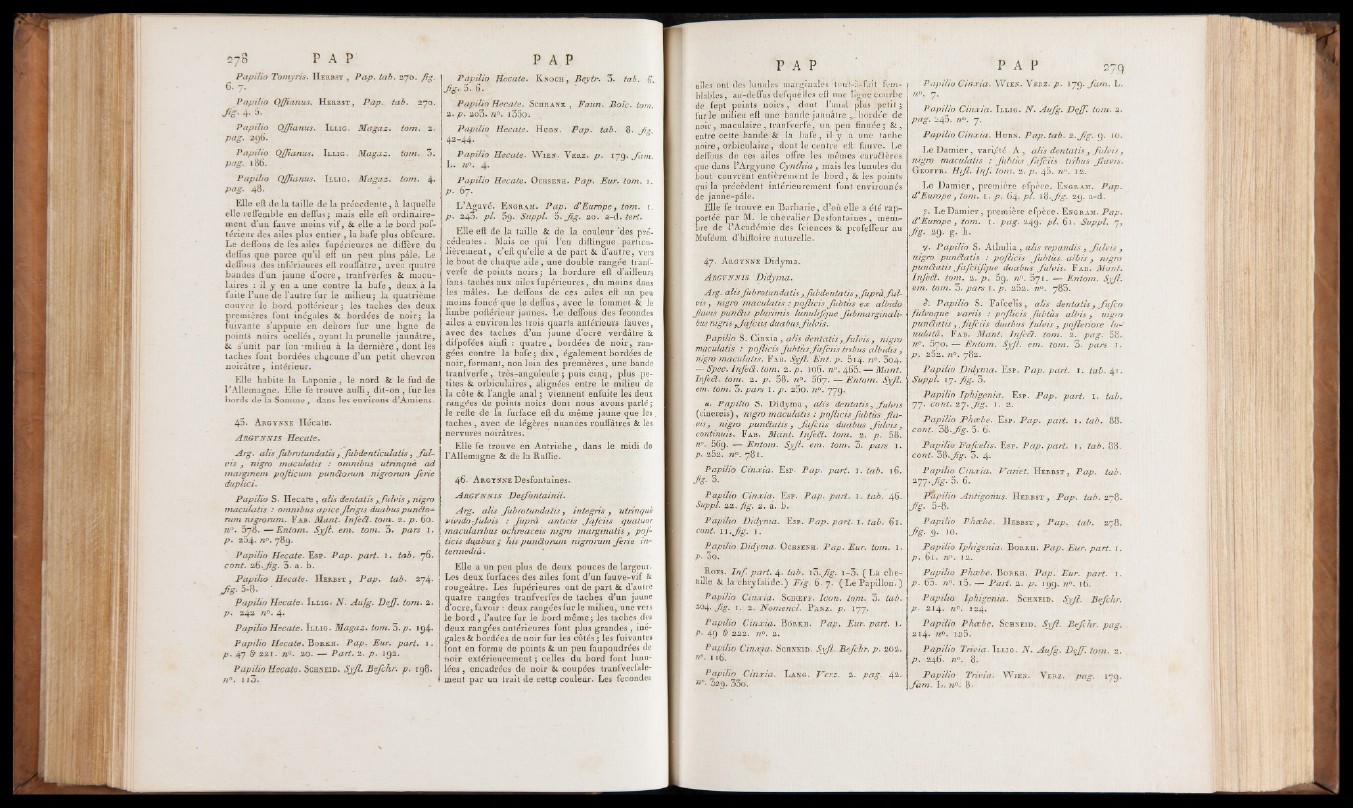 278 P A P
Papilio Tomyris. HERBST, Pap. tab. 270. fig.
6. 7.
Papilio Offianus. HERBST, Pap. tab. 270.
fig. 4. 5.
Papilio Offianus. ILLIG. Magaz. tom. 2.
pag. 296.
Papilio Offianus. ILLIG. Magaz. tom. 3.
pag. 186.
Papilio Offianus. ILLIG. Magaz. tom. 4.
pag. 48.
Elle eſt de la taille de la précédente, à laquelle
elle reſſemble en deſſus; mais elle eſt ordinaire-
ment d'un fauve moins vif, & elle a le bord poſ-
térieur des ailes plus entier, la baſe plus obſcure.
Le deſſous de ſes ailes ſupérieures ne diffère du
deſſus que parce qu'il eſt un peu plus pâle. Le
deſſous des inférieures eſt rouſſâtre, avec quatre
bandes d'un jaune d'ocre, tranſverſes & macu-
laires : il y en a une contre la baſe, deux à la
ſuite l'une de l'autre ſur le milieu; la quatrième
couvre le bord poſtérieur; les taches des deux
premières ſont inégales & bordées de noir; la
ſuivante s'appuie en dehors ſur une ligne de
points noirs ocellés, ayant la prunelle jaunâtre,
& s'unit par ſon milieu à la dernière, dont les
taches ſont bordées chacune d'un petit chevron
noirâtre, intérieur.
Elle habite la Laponie, le nord & le ſud de
l'Allemagne. Elle ſe trouve auſſi, dit-on, ſur les
bords de la Somme, dans les environs d'Amiens.
45. ARGYNNE Hécate.
ARGYNNIS Hecate.
Arg. alis ſubrotundatis, ſubdenticulatis, ful-
vis, nigro maculatis : omnibus utrinquè ad
marginem poſticum punctorum nigrorum ſerie
duplici.
Papilio S. Hecate, alis dentatis, fulvis, nigro
maculatis : omnibus apice ſtrigis duabus puncto-
rum nigrorum. FAB. Mant. Inſect. tom. 2. p. 60.
n°. 578. — Entom. Syſt. em. tom. 3. pars 1.
p. 254. n°. 789.
Papilio Hecate. ESP. Pap. part. 1. tab. 76.
cont. 26. fig. 3. a. b.
Papilio Hecate. HERBST, Pap. tab. 274.
fig. 5-8.
Papilio Hecate. ILLIG. N. Aufg. Deff. tom. 2.
p. 242 n°. 4.
Papilio Hecate. ILLIG. Magaz. tom. 3. p. 194.
Papilio Hecate. BORKH. Pap. Eur. part. 1.
p. 47 & 221. n°. 20. — Part. 2. p. 192.
Papilio Hecate. SCHNEID. Syſt. Beſchr. p. 198.
n°. 113.
P A P
Papilio Hecate. KNOCH, Beytr. 3. tab. 6.
fig. 5. 6.
Papilio Hecate. SCHRANK, Faun. Boïc. tom.
2. p. 203. n°. 1350.
Papilio Hecate. HUBN. Pap. tab. 8. fig.
42-44.
Papilio Hecate. WIEN. VERZ. p. 179. fam.
L. n°. 4.
Papilio Hecate. OCHSENH. Pap. Eur. tom. 1.
p. 67.
L'Agavé. ENGRAM. Pap. d'Europe, tom. 1.
p. 245. pl. 59. Suppl. 5. fig. 20. a-d. tert.
Elle eſt de la taille & de la couleur des pré-
cédentes. Mais ce qui l'en diſtingue particu-
lièrement, c'eſt qu'elle a de part & d'autre, vers
le bout de chaque aile, une double rangée tranſ-
verſe de points noirs; la bordure eſt d'ailleurs
ſans taches aux ailes ſupérieures, du moins dans
les mâles. Le deſſous de ces ailes eſt un peu
moins foncé que le deſſus, avec le ſommet & le
limbe poſtérieur jaunes. Le deſſous des ſecondes
ailes a environ les trois quarts antérieurs fauves,
avec des taches d'un jaune d'ocre verdâtre &
diſpoſées ainſi : quatre, bordées de noir, ran-
gées contre la baſe; dix, également bordées de
noir, formant, non loin des premières, une bande
tranſverſe, très-anguleuſe; puis cinq, plus pe-
tites & orbiculaires, alignées entre le milieu de
la côte & l'angle anal; viennent enſuite les deux
rangées de points noirs dont nous avons parlé;
le reſte de la ſurface eſt du même jaune que les
taches, avec de légères nuances rouſſâtres & les
nervures noirâtres.
Elle ſe trouve en Autriche, dans le midi de
l'Allemagne & de la Ruſſie.
46. ARGYNNE Desfontaines.
ARGYNNIS Desfontainii.
Arg. alis ſubrotundatis, integris, utrinquè
vivido-fulvis : ſuprà anticis faſciis quatuor
macularibus ochreaceis nigro marginatis, poſ-
ticis duabus; his punctorum nigrorum ſerie in-
termediâ.
Elle a un peu plus de deux pouces de largeur.
Les deux ſurfaces des ailes ſont d'un fauve-vif &
rougeâtre. Les ſupérieures ont de part & d'autre
quatre rangées tranſverſes de taches d'un jaune
d'ocre, ſavoir : deux rangées ſur le milieu, une vers
le bord, l'autre ſur le bord même; les taches des
deux rangées antérieures ſont plus grandes, iné-
gales & bordées de noir ſur les côtés; les ſuivantes
ſont en forme de points & un peu ſaupoudrées de
noir extérieurement; celles du bord ſont lunu-
lées, encadrées de noir & coupées tranſverſale-
ment par un trait de cette couleur. Les ſecondes
P A P
ailes ont des lunules marginales tout-à-fait ſem-
blables, au-deſſus deſquelles eſt une ligne courbe
de ſept points noirs, dont l'anal plus petit;
ſur le milieu eſt une bande jaunâtre, bordée de
noir, maculaire, tranſverſe, un peu ſinuée; &,
entre cette bande & la baſe, il y a une tache
noire, orbiculaire, dont le centre eſt fauve. Le
deſſous de ces ailes offre les mêmes caractères
que dans l'Argynne Cynthia, mais les lunules du
bout couvrent entièrement le bord, & les points
qui la précèdent intérieurement ſont environnés
de jaune-pâle.
Elle ſe trouve en Barbarie, d'où elle a été rap-
portée par M. le chevalier Desfontaines, mem-
bre de l'Académie des ſciences & profeſſeur au
Muſéum d'hiſtoire naturelle.
47. ARGYNNE Didyma.
ARGYNNIS Didyma.
Arg. alis ſubrotundatis, ſubdentatis, ſuprà ful-
vis, nigro maculatis : poſticis ſubtùs ex albido
flavis punctis plurimis lunuliſque ſubmarginali-
bus nigris, faſciis duabus fulvis.
Papilio S. Cinxia, alis dentatis, fulvis, nigro
maculatis : poſticis ſubtùs faſciis tribus albidis,
nigro maculatis. FAB. Syſt. Ent. p. 514. n°. 304.
— Spec. Inſect. tom. 2. p. 106. n°. 465. — Mant.
Inſect. tom. 2. p. 58. n°. 567. — Entom. Syſt.
em. tom. 3. pars 1. p. 250. n°. 779.
α. Papilio S. Didyma, alis dentatis, fulvis
(cinereis), nigro maculatis : poſticis ſubtùs fla-
vis, nigro punctatis, faſciis duabus fulvis,
continuis. FAB. Mant. Inſect. tom. 2. p. 58.
n°. 569. — Entom. Syſt. em. tom. 3. pars 1.
p. 252. n°. 781.
Papilio Cinxia. ESP. Pap. part. 1. tab. 16.
fig. 3.
Papilio Cinxia. ESP. Pap. part. 1. tab. 46.
Suppl. 22. fig. 2. a. b.
Papilio Didyma. ESP. Pap. part. 1. tab. 61.
cont. 11. fig. 1.
Papilio Didyma. OCHSENH. Pap. Eur. tom. 1.
p. 30.
ROES. Inf. part. 4. tab. 13. fig. 1-3. (La che-
nille & la chryſalide.) Fig. 6. 7. (Le Papillon.)
Papilio Cinxia. SCHÆFF. Icon. tom. 3. tab.
204. fig. 1. 2. Nomencl. PANZ. p. 177.
Papilio Cinxia. BORKH. Pap. Eur. part. 1.
p. 49 & 222. n°. 2.
Papilio Cinxia. SCHNEID. Syſt. Beſchr. p. 202.
n°. 116.
Papilio Cinxia. LANG. Verz. 2. pag. 42.
n°. 329. 330.
P A P 279
Papilio Cinxia. WIEN. VERZ. p. 179. fam. L.
n°. 7.
Papilio Cinxia. ILLIG. N. Aufg. Deff. tom. 2.
pag. 245. n°. 7.
Papilio Cinxia. HUBN. Pap. tab. 2. fig. 9. 10.
Le Damier, variété A, alis dentatis, fulvis,
nigro maculatis : ſubtùs faſciis tribus flavis.
GEOFFR. Hiſt. Inſ. tom. 2. p. 45. n°. 12.
Le Damier, première eſpèce. ENGRAM. Pap.
d'Europe, tom. 1. p. 64. pl. 18. fig. 29. a-d.
Le Damier, première eſpèce. ENGRAM. Pap.
d'Europe, tom. 1. pag. 249. pl. 61. Suppl. 7,
fig. 29. g. h.
γ. Papilio S. Athalia, alis repandis, fulvis,
nigro punctatis : poſticis ſubtùs albis, nigro
punctatis faſciiſque duabus fulvis. FAB. Mant.
Inſect. tom. 2. p. 59. n°. 571. — Entom. Syſt.
em. tom. 3. pars 1. p. 252. n°. 783.
δ. Papilio S. Faſcelis, alis dentatis, fuſco
fulvoque variis : poſticis ſubtùs albis, nigro
punctatis, faſciis duabus fulvis, poſteriore lu-
nulatâ. FAB. Mant. Inſect. tom. 2. pag. 58.
n°. 570. — Entom. Syſt. em. tom. 3. pars 1.
p. 252. n°. 782.
Papilio Didyma. ESP. Pap. part. 1. tab. 41.
Suppl. 17. fig. 3.
Papilio Iphigenia. ESP. Pap. part. 1. tab.
77. cont. 27. fig. 1. 2.
Papilio Phœbe. ESP. Pap. part. 1. tab. 88.
cont. 38. fig. 5. 6.
Papilio Faſcelis. ESP. Pap. part. 1. tab. 88.
cont. 38. fig. 3. 4.
Papilio Cinxia. Variet. HERBST, Pap. tab.
277. fig. 5. 6.
Papilio Antigonus. HERBST, Pap. tab. 278.
fig. 5-8.
Papilio Phœbe. HERBST, Pap. tab. 278.
fig. 9. 10.
Papilio Iphigenia. BORKH. Pap. Eur. part. 1.
p. 61. n°. 12.
Papilio Phœbe. BORKH. Pap. Eur. part. 1.
p. 65. n°. 15. — Part. 2. p. 199. n°. 16.
Papilio Iphigenia. SCHNEID. Syſt. Beſchr.
p. 214. n°. 124.
Papilio Phœbe. SCHNEID. Syſt. Beſchr. pag.
214. n°. 125.
Papilio Trivia. ILLIG. N. Aufg. Deff. tom. 2.
p. 246. n°. 8.
Papilio Trivia. WIEN. VERZ. pag. 179.
fam. L. n°. 8.